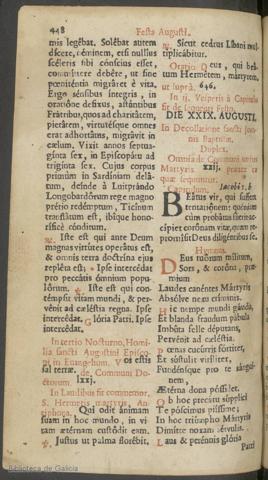 448 Festa Augusti.
mis legebat. Solèbat autem
dícere, néminem, etsi nullius
scéleris sibi conscius esset,
committere debére, ut sine
pœniténtia migráret è vita,
Ergo sénsibus íntegris, in
oratióne defixus, astántibus
Frátribus, quos ad charitátem,
pietátem, virtutésque omnes
erat adhortátus, migrávit in
cælum. Vixit annos septua-
ginta sex, in Episcopátu ad
triginta sex. Cujus corpus
primum in Sardíniam delá-
tum, deínde à Luitprándo
Longobardórum rege magno
prétio redémptum, Ticínum
translátum est, ibíque hono-
rificè cónditum.
℣. Iste est qui ante Deum
magnas virtútes operátus est,
& omnis terra doctrína ejus
repléta est; * Ipse intercédat
pro peccátis ómnium popu-
lórum. ℣. Iste est qui con-
témpsit vitam mundi, & per-
vénit ad cœléstia regna. Ipse
intercédat. Glória Patri. Ipse
intercédat.
In tertio Nocturno, Homi-
lia sancti Augustini Episco-
pi in Evangelium. Vos estis
sal terræ. de Communi Do-
ctorum lxxj.
In Laudibus fit commemor,
S. Hermetis martyris, An-
tiphona. Qui odit ánimam
suam in hoc mundo, in vi-
tam ætérnam custódit eam.
℣. Justus ut palma florébit.
℟. Sicut cedrus Líbani mul-
tiplicábitur.
Oratio. Deus, qui beá-
tum Hermétem, mártyrem,
ut suprà 646.
In ij. Vesperis à Capitulo
fit de sequenti Festo.
DIE XXIX. AUGUSTI,
In Decollatione sancti Joan-
nis Baptistæ,
Duplex.
Omnia de Communi unius
Martyris xxij. præter ea
quæ sequuntur.
Capitulum. Jacobi 1. b
Beátus vir, qui suffert
tentatiónem: quóniam
cùm probátus fúerit ac-
cípiet corónam vitæ, quam re-
promísit Deus diligéntibus se.
Hymnus.
Deus tuórum mílitum,
Sors, & coróna, præ-
mium
Laudes canéntes Mártyris
Absólve nexu críminis.
Hic nempe mundi gáudia,
Et blanda fraudum pábula
Imbúta felle députans,
Pervénit ad cæléstia.
Pœnas cucúrrit fórtiter,
Et sústulit viríliter,
Fundénsque pro te sángui-
nem,
Ætérna dona póssidet.
Ob hoc precátu súpplici
Te póscimus piíssime;
In hoc triúmpho Mártyris
Dimítte noxam sérvulis.
Laus & perénnis glória
Patri
Biblioteca de Galicia